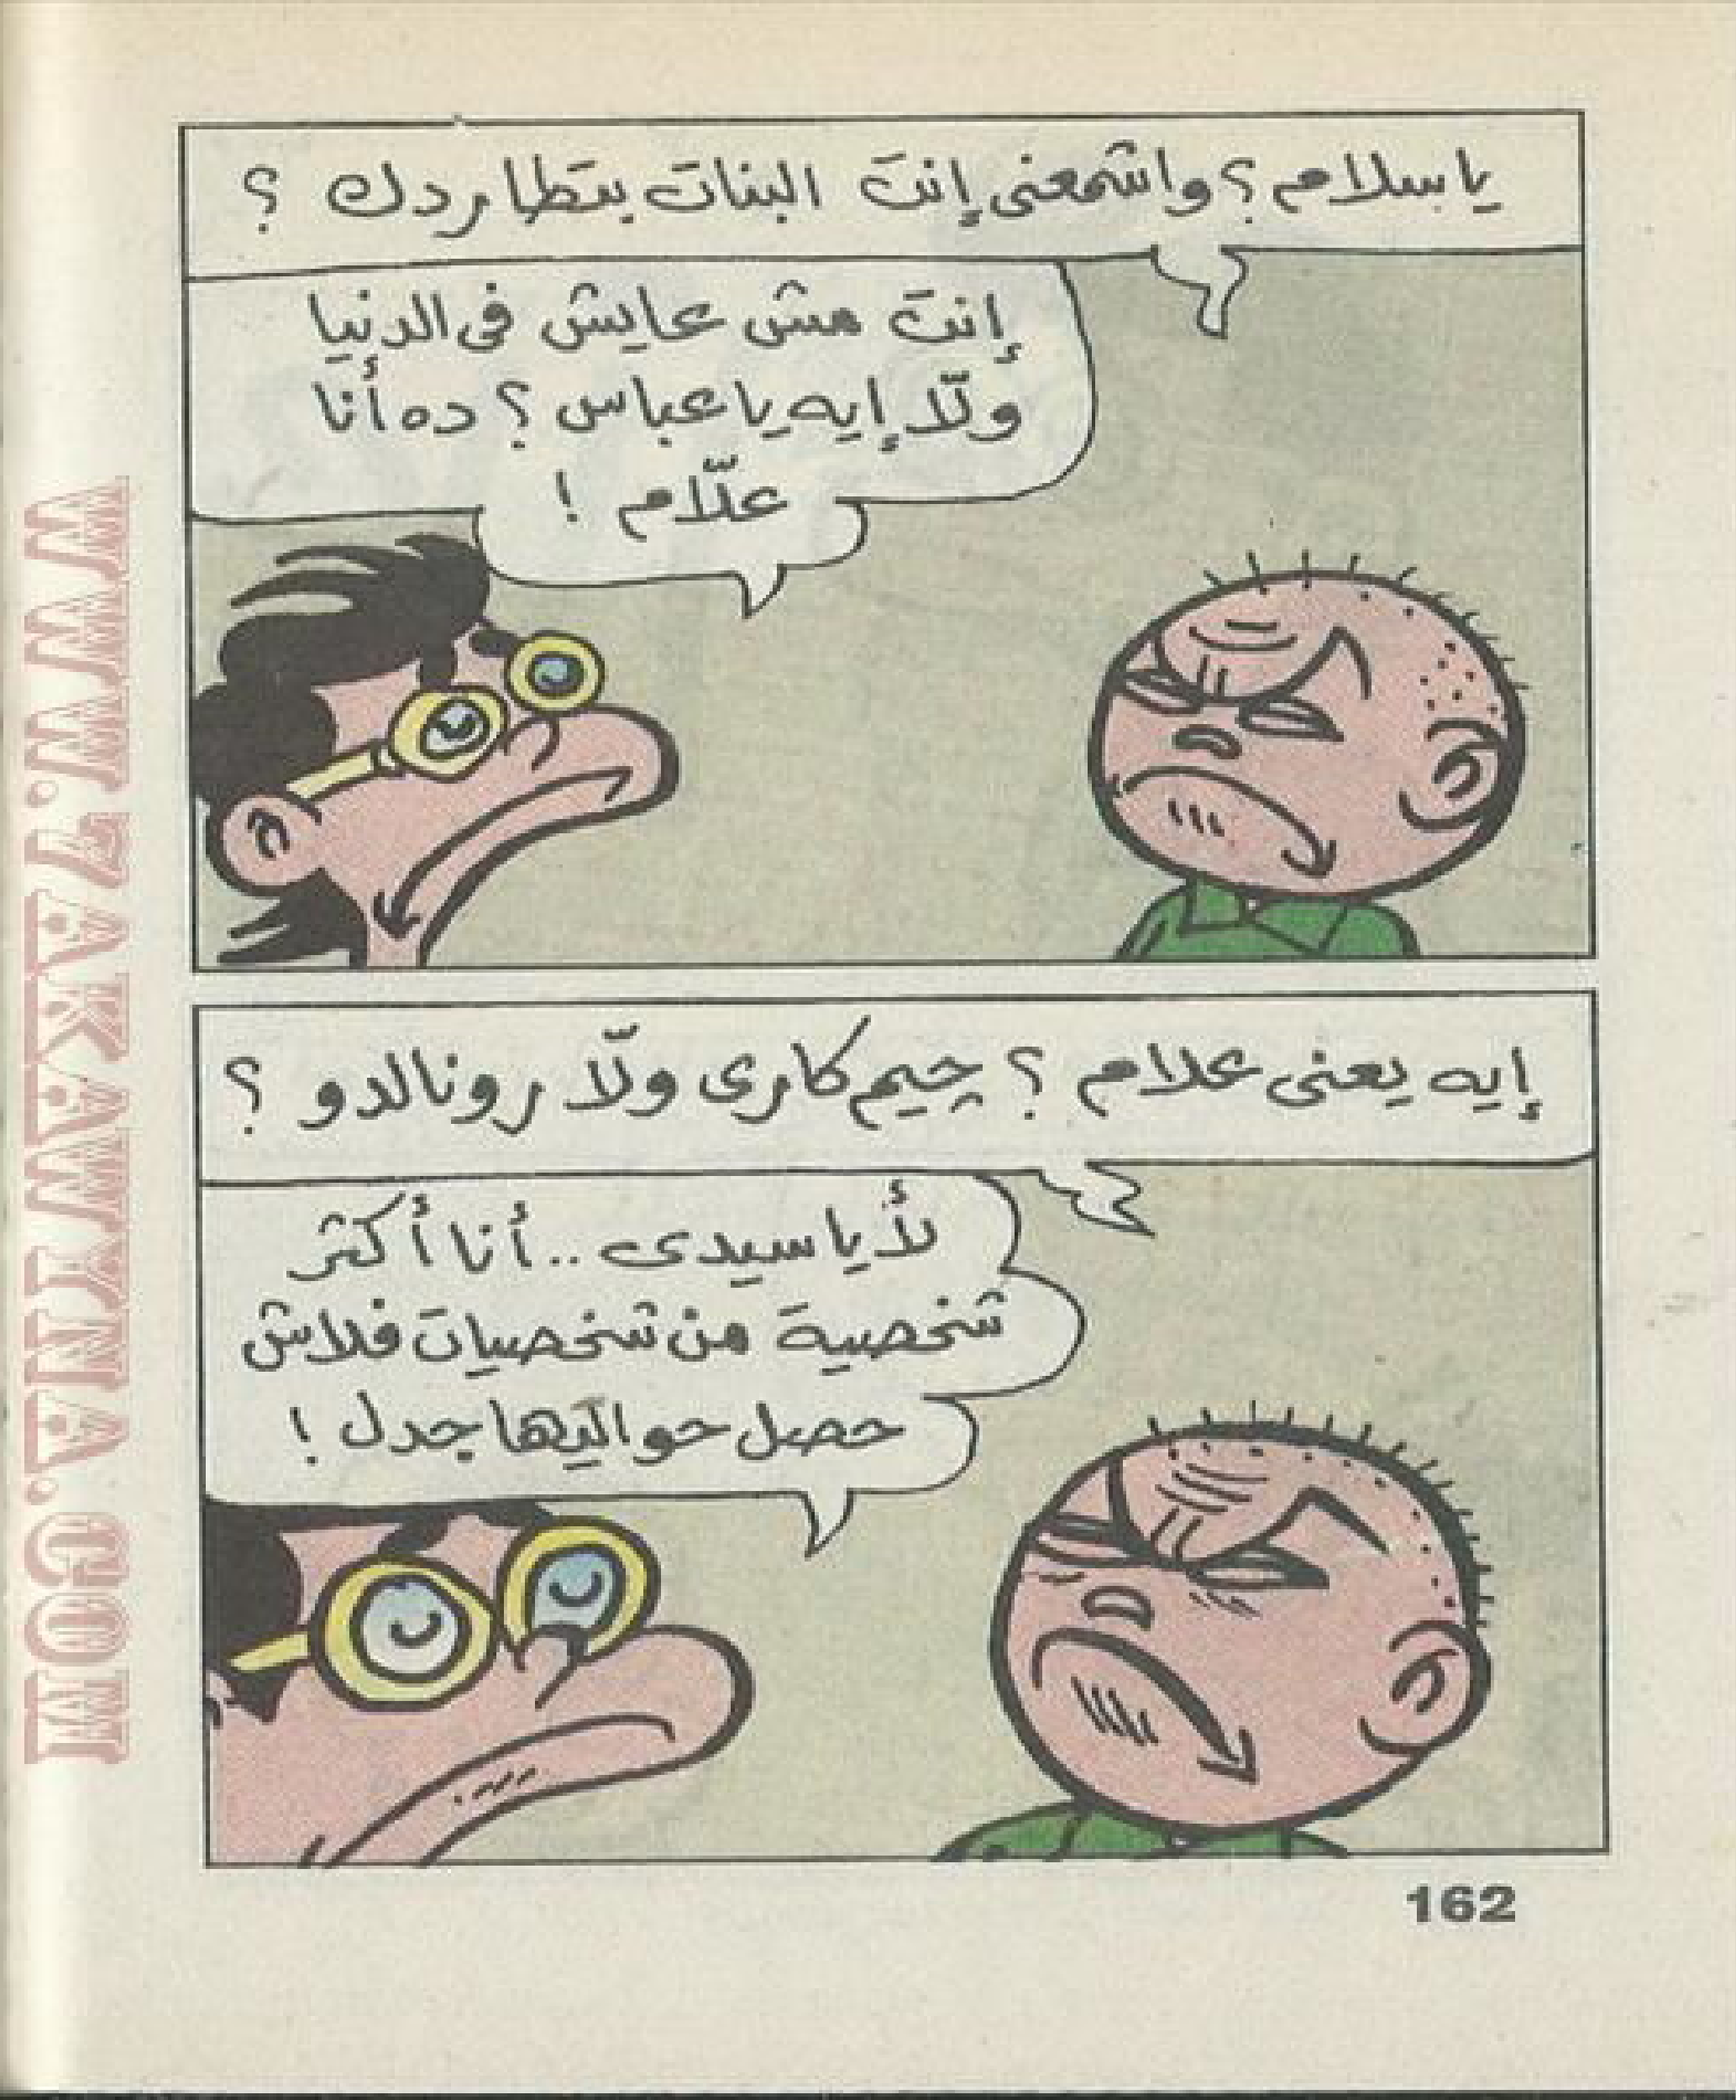 ياسلام؟ واشمعنى إنت البنات بتطاردك ؟
إنت مش عايش فى الدنيا
ولّا إيه يا عباس ؟ ده أنا
علّام !
إيه يعنى علام ؟ چيم كارى ولّا رونالدو ؟
لأ يا سيدى .. أنا أكتر
شخصية من شخصيات فلاش
حصل حواليها جدل !
162
WWW.7AKAWINA.COM